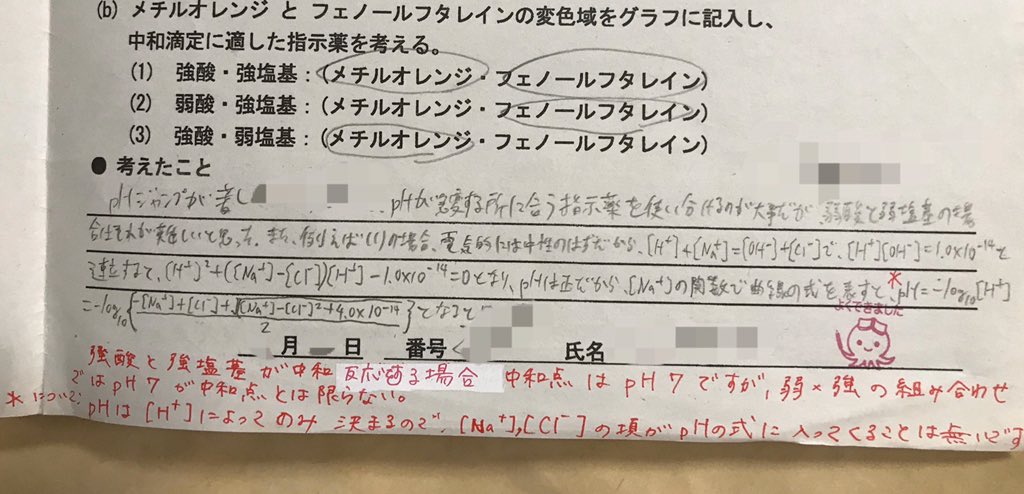 (b) メチルオレンジ と フェノールフタレインの変色域をグラフに記入し、
中和滴定に適した指示薬を考える。
(1) 強酸・強塩基：(メチルオレンジ・フェノールフタレイン)
(2) 弱酸・強塩基：(メチルオレンジ・フェノールフタレイン)
(3) 強酸・弱塩基：(メチルオレンジ・フェノールフタレイン)
● 考えたこと
pHジャンプが著し pHが急変する所に合う指示薬を使い分けるのが大事だが、弱酸と弱塩基の場
合はそれが難しいと思った。また、例えば(1)の場合、電気的には中性のはずだから、[H⁺]+[Na⁺]=[OH⁻]+[Cl⁻]で、[H⁺][OH⁻]=1.0×10⁻¹⁴と
連立すると、[H⁺]²+([Na⁺]-[Cl⁻])[H⁺]-1.0×10⁻¹⁴=0となり、pHは正だから、[Na⁺]の関数で曲線の式を表すと、*pH=-log₁₀[H⁺]
=-log₁₀{(-[Na⁺]+[Cl⁻]+√([Na⁺]-[Cl⁻])²+4.0×10⁻¹⁴)/2}となると
よくできました
月 日 番号 氏名
強酸と強塩基が中和反応する場合 中和点は pH 7 ですが、弱×強の組み合わせ
ではpH 7 が中和点とは限らない。
*について: pHは[H⁺]によってのみ 決まるので、[Na⁺],[Cl⁻]の項がpHの式に入ってくることは無いです